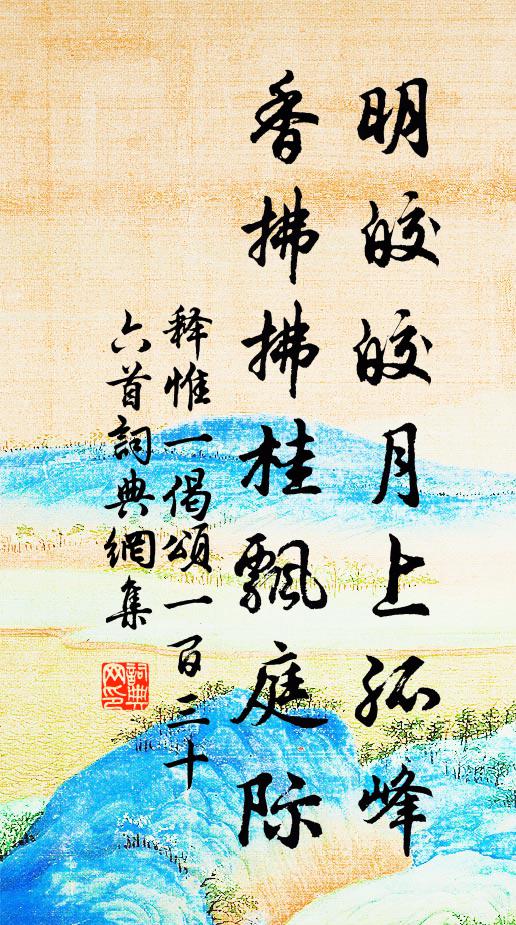 明皎皎月上孤峰
香拂拂桂飄庭际
释惟一偈頌一百三十
六首詞典網集
詞典
网印